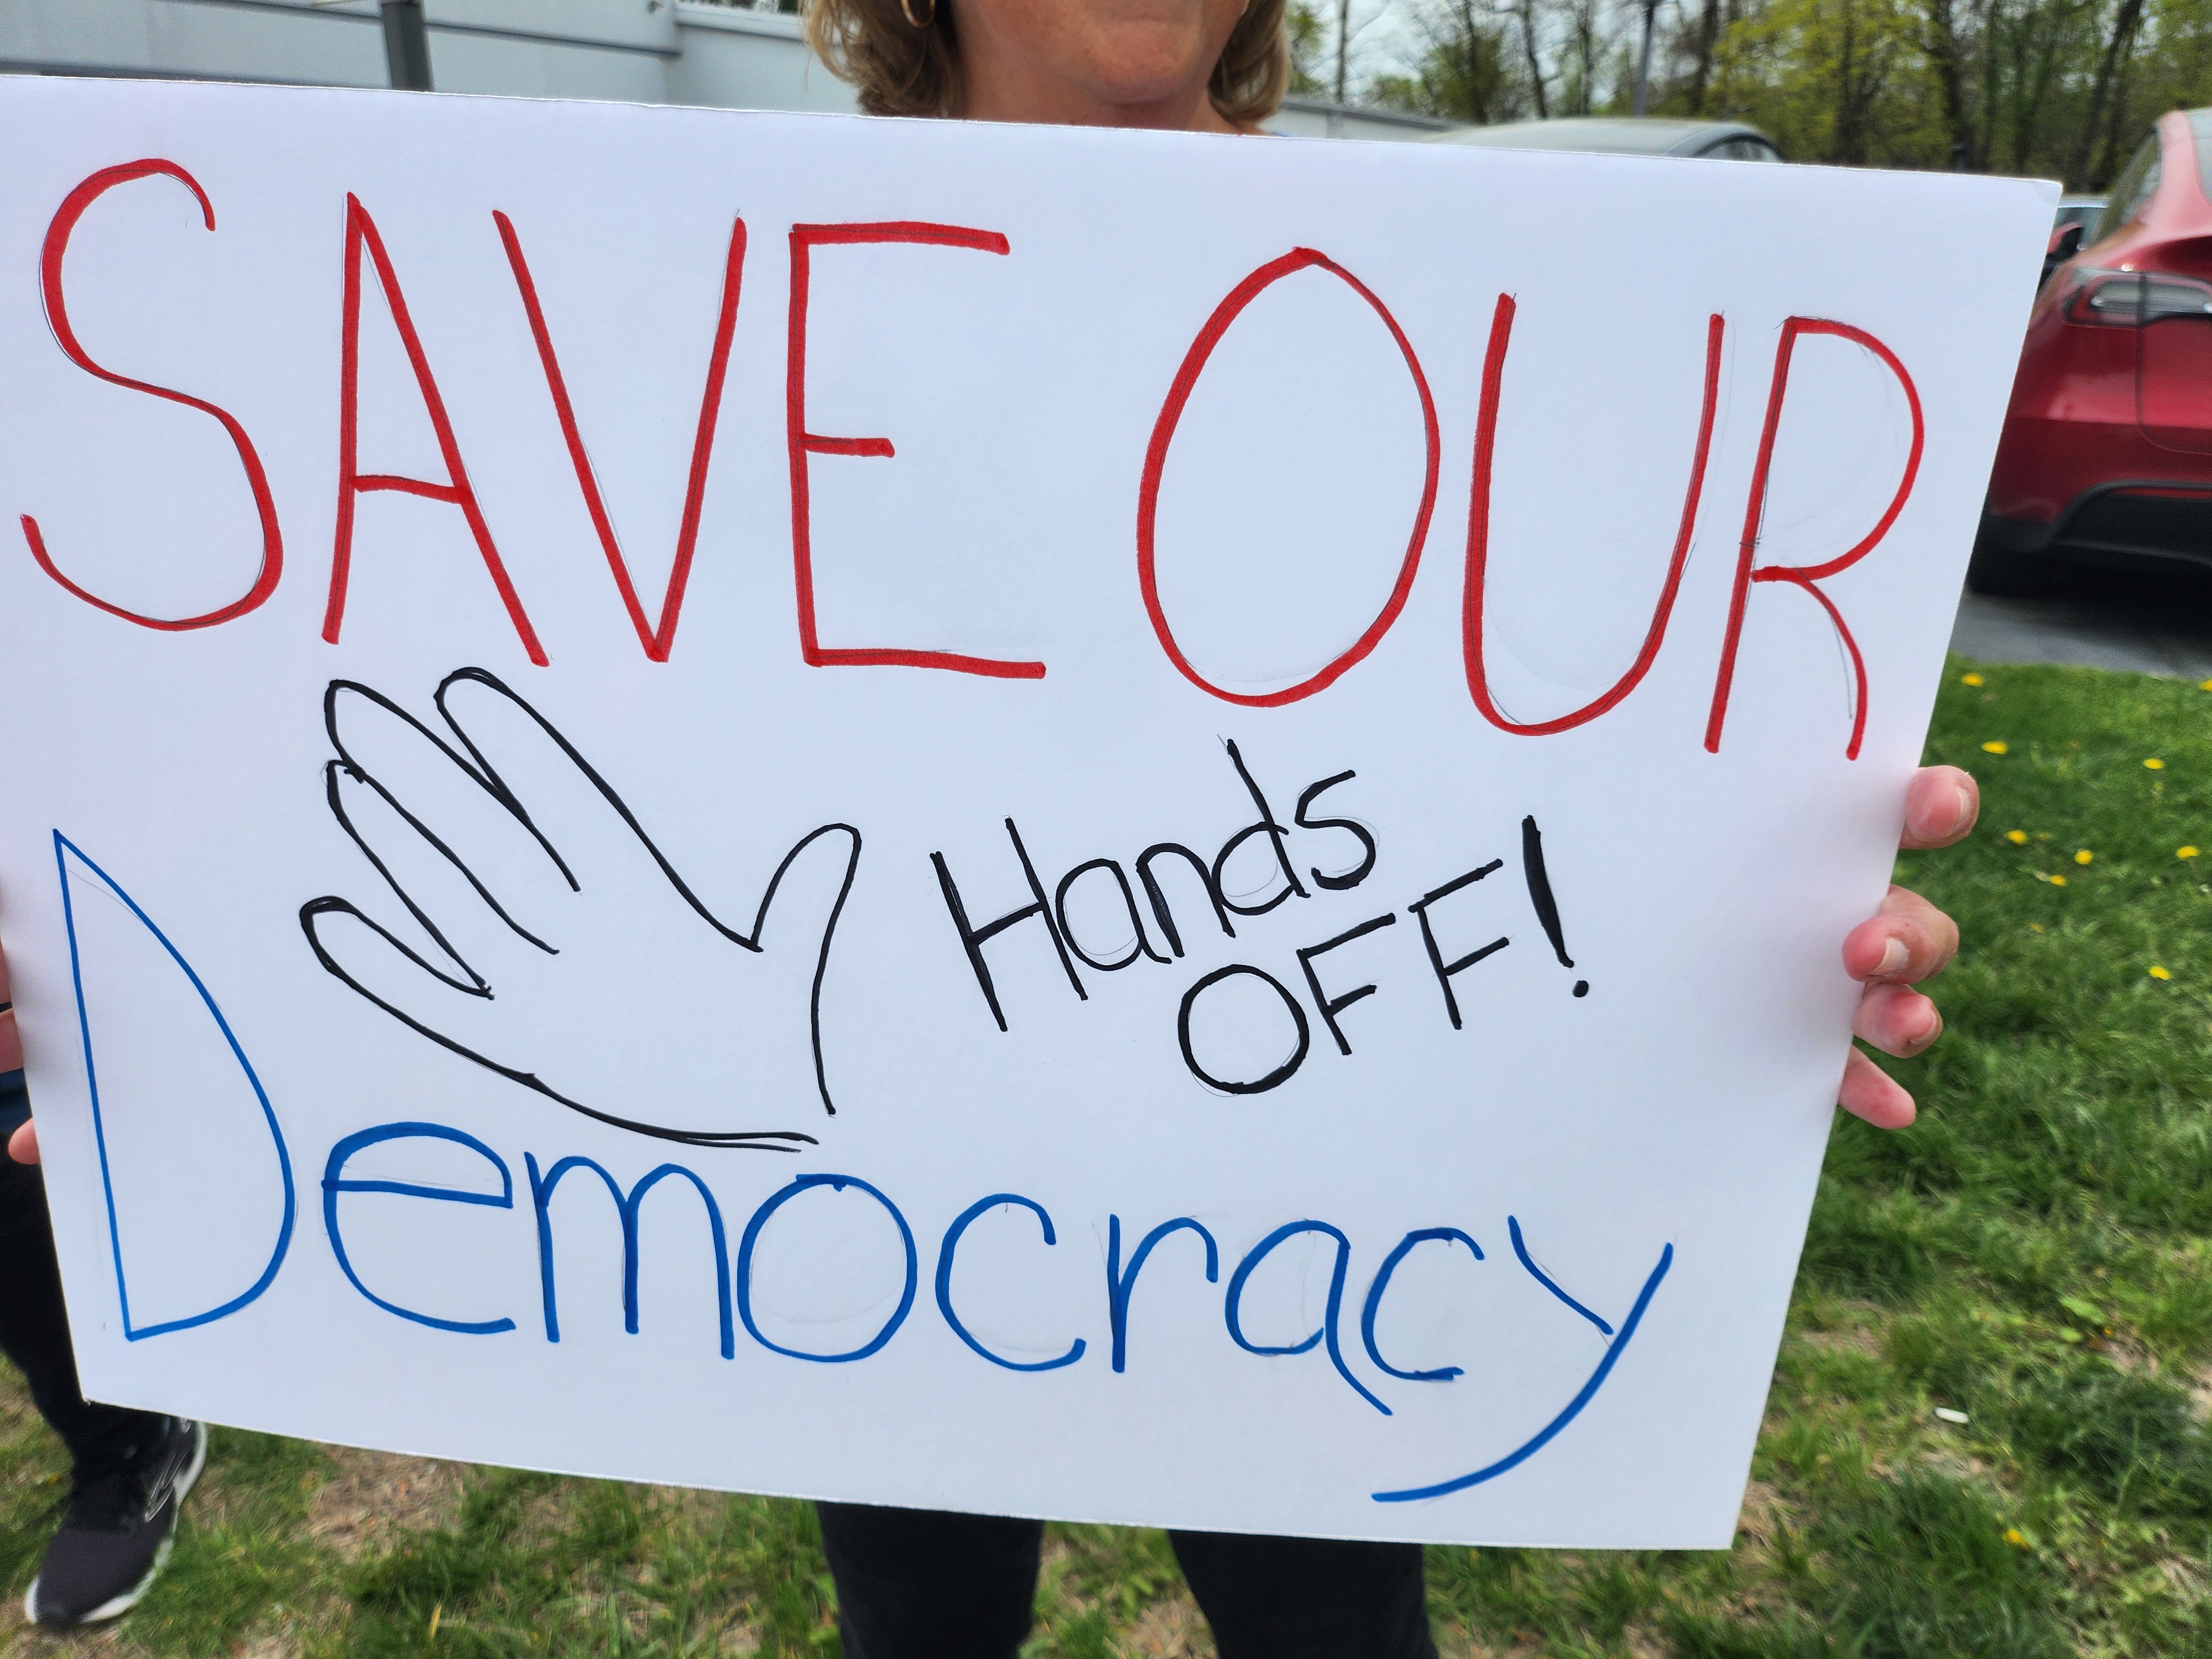 SAVE OUR
Hands
OFF!
Democracy